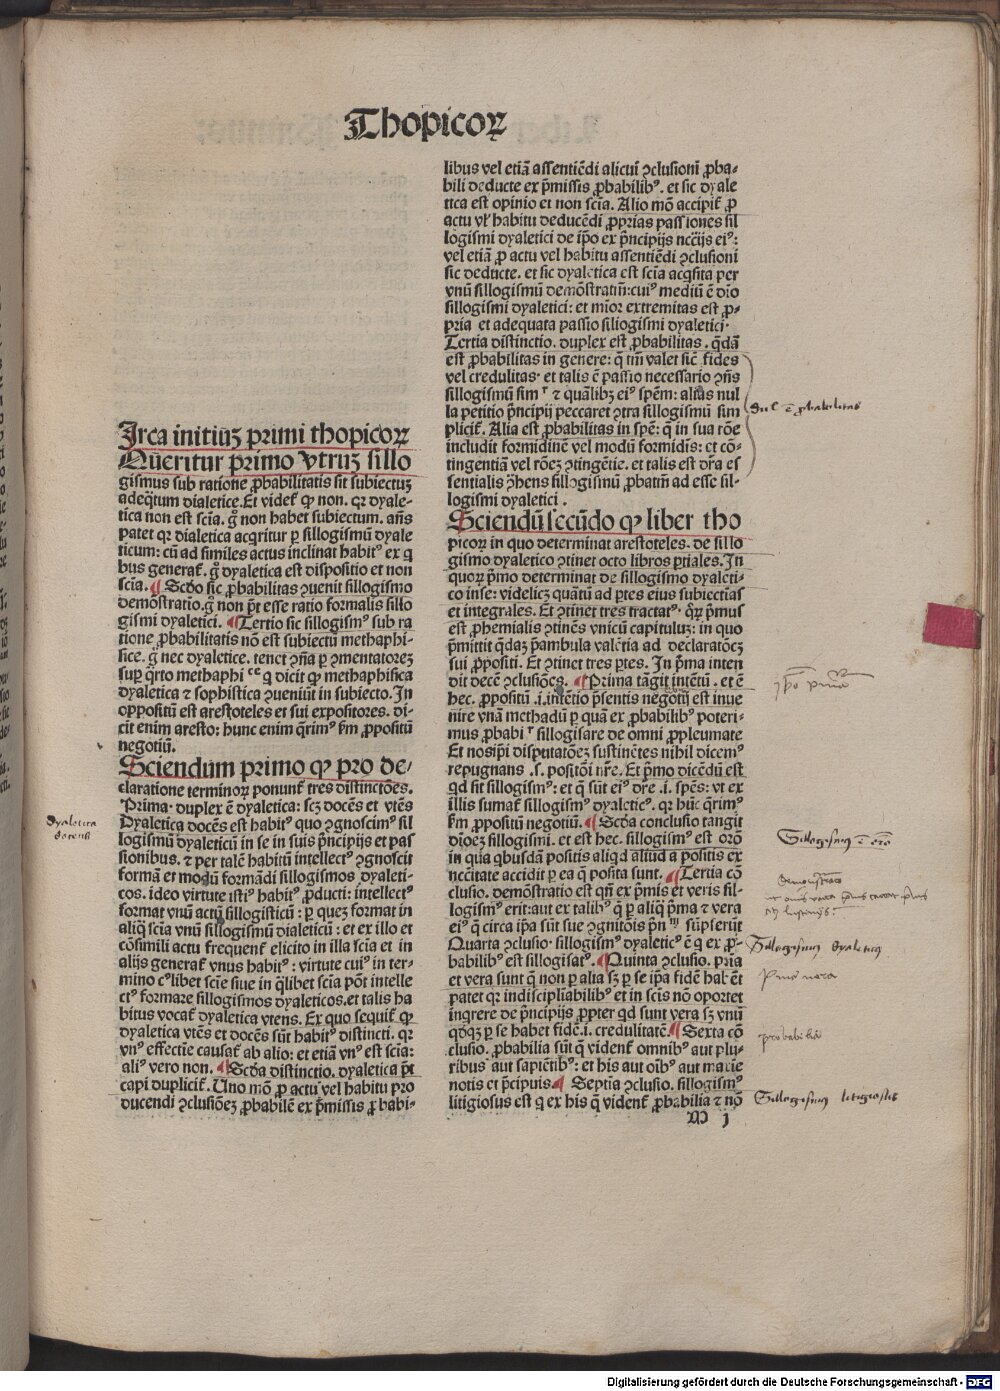 Thopicoꝝ
Irca initiuꝫ primi thopicoꝝ
Queritur primo vtruꝫ sillo
gismus sub ratione ꝓbabilitatis sit subiectuꝫ
adeq̄tum dialetice. Et videt̄ ꝙ non. qꝛ dyale-
tica non est scīa. g̊ non habet subiectum. añs
patet qꝛ dialetica acq̄ritur ꝑ sillogismū dyale
ticum: cū ad similes actus inclinat habitꝰ ex q̄
bus generat̄. g̊ dyaletica est dispositio et non
scīa. ¶ Scd̄o sic ꝓbabilitas ꝯuenit sillogismo
demōstratio. g̊ non p̄t esse ratio formalis sillo
gismi dyaletici. ¶ Tertio sic sillogismꝰ sub ra
tione ꝓbabilitatis nō est subiectū methaphi-
sice. g̊ nec dyaletice. tenet ꝯña ꝑ ꝯmentatoreꝫ
suꝑ q̄rto methaphiᶜᵉ q dicit ꝙ methaphisica
dyaletica ⁊ sophistica ꝯueniūt in subiecto. In
oppositū est arestoteles et sui expositores. di-
cit enim aresto: hunc enim q̄rimꝰ ẜm ꝓpositū
negotiū.
Sciendum primo ꝙ pro de/
claratione terminoꝝ ponunt̄ tres distinctōes.
Prima. duplex ē dyaletica: scꝫ docēs et vtēs
Dyaletica docēs est habitꝰ quo ꝯgnoscimꝰ sil
logismū dyaleticū in se in suis p̄ncipijs et pas
sionibus. ⁊ ꝑ talē habitū intellectꝰ ꝯgnoscit
formā et modū formādi sillogismos dyaleti-
cos. ideo virtute istiꝰ habitꝰ ꝓducti: intellectꝰ
format vnū actū sillogisticū: ꝑ queꝫ format in
aliq̄ scīa vnū sillogismū dialeticū: et ex illo et
cōsimili actu frequent̄ elicito in illa scīa et in
alijs generat̄ vnus habitꝰ: virtute cuiꝰ in ter-
mino cꝰlibet scīe siue in q̄libet scīa pōt intelle
ctꝰ formare sillogismos dyaleticos. et talis ha
bitus vocat̄ dyaletica vtens. Ex quo sequit̄ ꝙ
dyaletica vtēs et docēs sūt habitꝰ distincti. qꝛ
vnꝰ effectie causat̄ ab alio: et etiā vnꝰ est scīa:
aliꝰ vero non. ¶ Scd̄a distinctio. dyaletica p̄t
capi duplicit̄. Uno mō ꝓ actu vel habitu pro
ducendi ꝯclusiōeꝫ ꝓbabilē ex p̄missis ꝓbabi-
libus vel etiā assentiēdi alicui ꝯclusioni ꝓba-
bili deducte ex p̄missis ꝓbabilibꝰ. et sic dyale
tica est opinio et non scīa. Alio mō accipit̄ ꝓ
actu vl̄ habitu deducēdi ꝓprias passiones sil
logismi dyaletici de ip̄o ex p̄ncipijs ncc̄ijs eiꝰ:
vel etiā ꝓ actu vel habitu assentiēdi ꝯclusioni
sic deducte. et sic dyaletica est scīa acq̄sita per
vnū sillogismū demōstratiū: cuiꝰ mediū ē dīo
sillogismi dyaletici: et mīor extremitas est ꝓ-
pria et adequata passio sillogismi dyaletici.
Tertia distinctio. duplex est ꝓbabilitas. q̄dā
est ꝓbabilitas in genere: q̄ tm̄ valet sic̄ fides
vel credulitas. et talis ē passio necessario ꝯñs
sillogismū sim ͬ ⁊ quālibꝫ eiꝰ spēm: alias nul
la petitio p̄ncipij peccaret ꝯtra sillogismū sim
plicit̄. Alia est ꝓbabilitas in spē: q̄ in sua rōe
includit formidinē vel modū formidīs: et cō-
tingentiā vel rōeꝫ ꝯtingētie. et talis est dr̄a es
sentialis ꝯhens sillogismū ꝓbatiū ad esse sil-
logismi dyaletici.
Sciendū secūdo ꝙ liber tho
picoꝝ in quo determinat arestoteles. de sillo
gismo dyaletico ꝯtinet octo libros ꝑtiales. In
quoꝝ p̄mo determinat de sillogismo dyaleti-
co inse: videlicꝫ quātū ad ꝑtes eius subiectiās
et integrales. Et ꝯtinet tres tractatꝰ. qꝝ p̄mus
est ꝓhemialis ꝯtinēs vnicū capituluꝫ: in quo
p̄mittit q̄daꝫ p̄ambula valētia ad declaratōeꝫ
sui ꝓpositi. Et ꝯtinet tres ꝑtes. In p̄ma inten
dit decē ꝯclusiōes. ¶ Prima tāgit intētū. et ē
hec. ꝓpositū .i. intētio p̄sentis negotij est inue
nire vnā methadū ꝑ quā ex ꝓbabilibꝰ poteri-
mus ꝓbabi ͬ sillogisare de omni ꝓpleumate
Et nosip̄i disputatōeꝫ sustinētes nihil dicemꝰ
repugnans .s. positōi nr̄e. Et p̄mo dicēdū est
qd sit sillogismꝰ: et q̄ sūt eiꝰ dr̄e .i. spēs: vt ex
illis sumat̄ sillogismꝰ dyaleticꝰ. qꝛ hūc q̄rimꝰ
ẜm ꝓpositū negotiū. ¶ Scd̄a conclusio tangit
dīoeꝫ sillogismi. et est hec. sillogismꝰ est orō
in qua qbusdā positis aliqd aliud a positis ex
nccītate accidit ꝑ ea q̄ posita sunt. ¶ Tertia cō
clusio. demōstratio est qn̄ ex p̄mis et veris sil-
logismꝰ erit: aut ex talibꝰ q̄ ꝑ aliq̄ p̄ma ⁊ vera
eiꝰ q̄ circa ip̄a sūt sue ꝯgnitōis p̄nᵐ sūpserūt
Quarta ꝯclusio. sillogismꝰ dyaleticꝰ ē q ex ꝓ-
babilibꝰ est sillogisatꝰ. ¶ Quinta ꝯclusio. prīa
et vera sunt q̄ non ꝑ alia sꝫ ꝑ se ip̄a fidē habēt
patet qꝛ indisciplīabilibꝰ et in scīs nō oportet
inq̄rere de p̄ncipijs ꝓpter qd sunt vera sꝫ vnū
qd̄qꝫ ꝑ se habet fidē .i. credulitatē. ¶ Sexta cō
clusio. ꝓbabilia sūt q̄ vident̄ omnibꝰ aut plu-
ribus aut sapiētibꝰ: et his aut oībꝰ aut maxīe
notis et p̄cipuis. ¶ Septīa ꝯclusio. sillogismꝰ
litigiosus est q ex his q̄ vident̄ ꝓbabilia ⁊ nō
M j
dyaletica
docens
Dul̄ ē ꝓbabilitas
Sillogismus ē orō
demonstratio
Sillogismus dyaleticus
Prima vera
probabilia
Sillogismus litigiosus
Digitalisierung gefördert durch die Deutsche Forschungsgemeinschaft - DFG